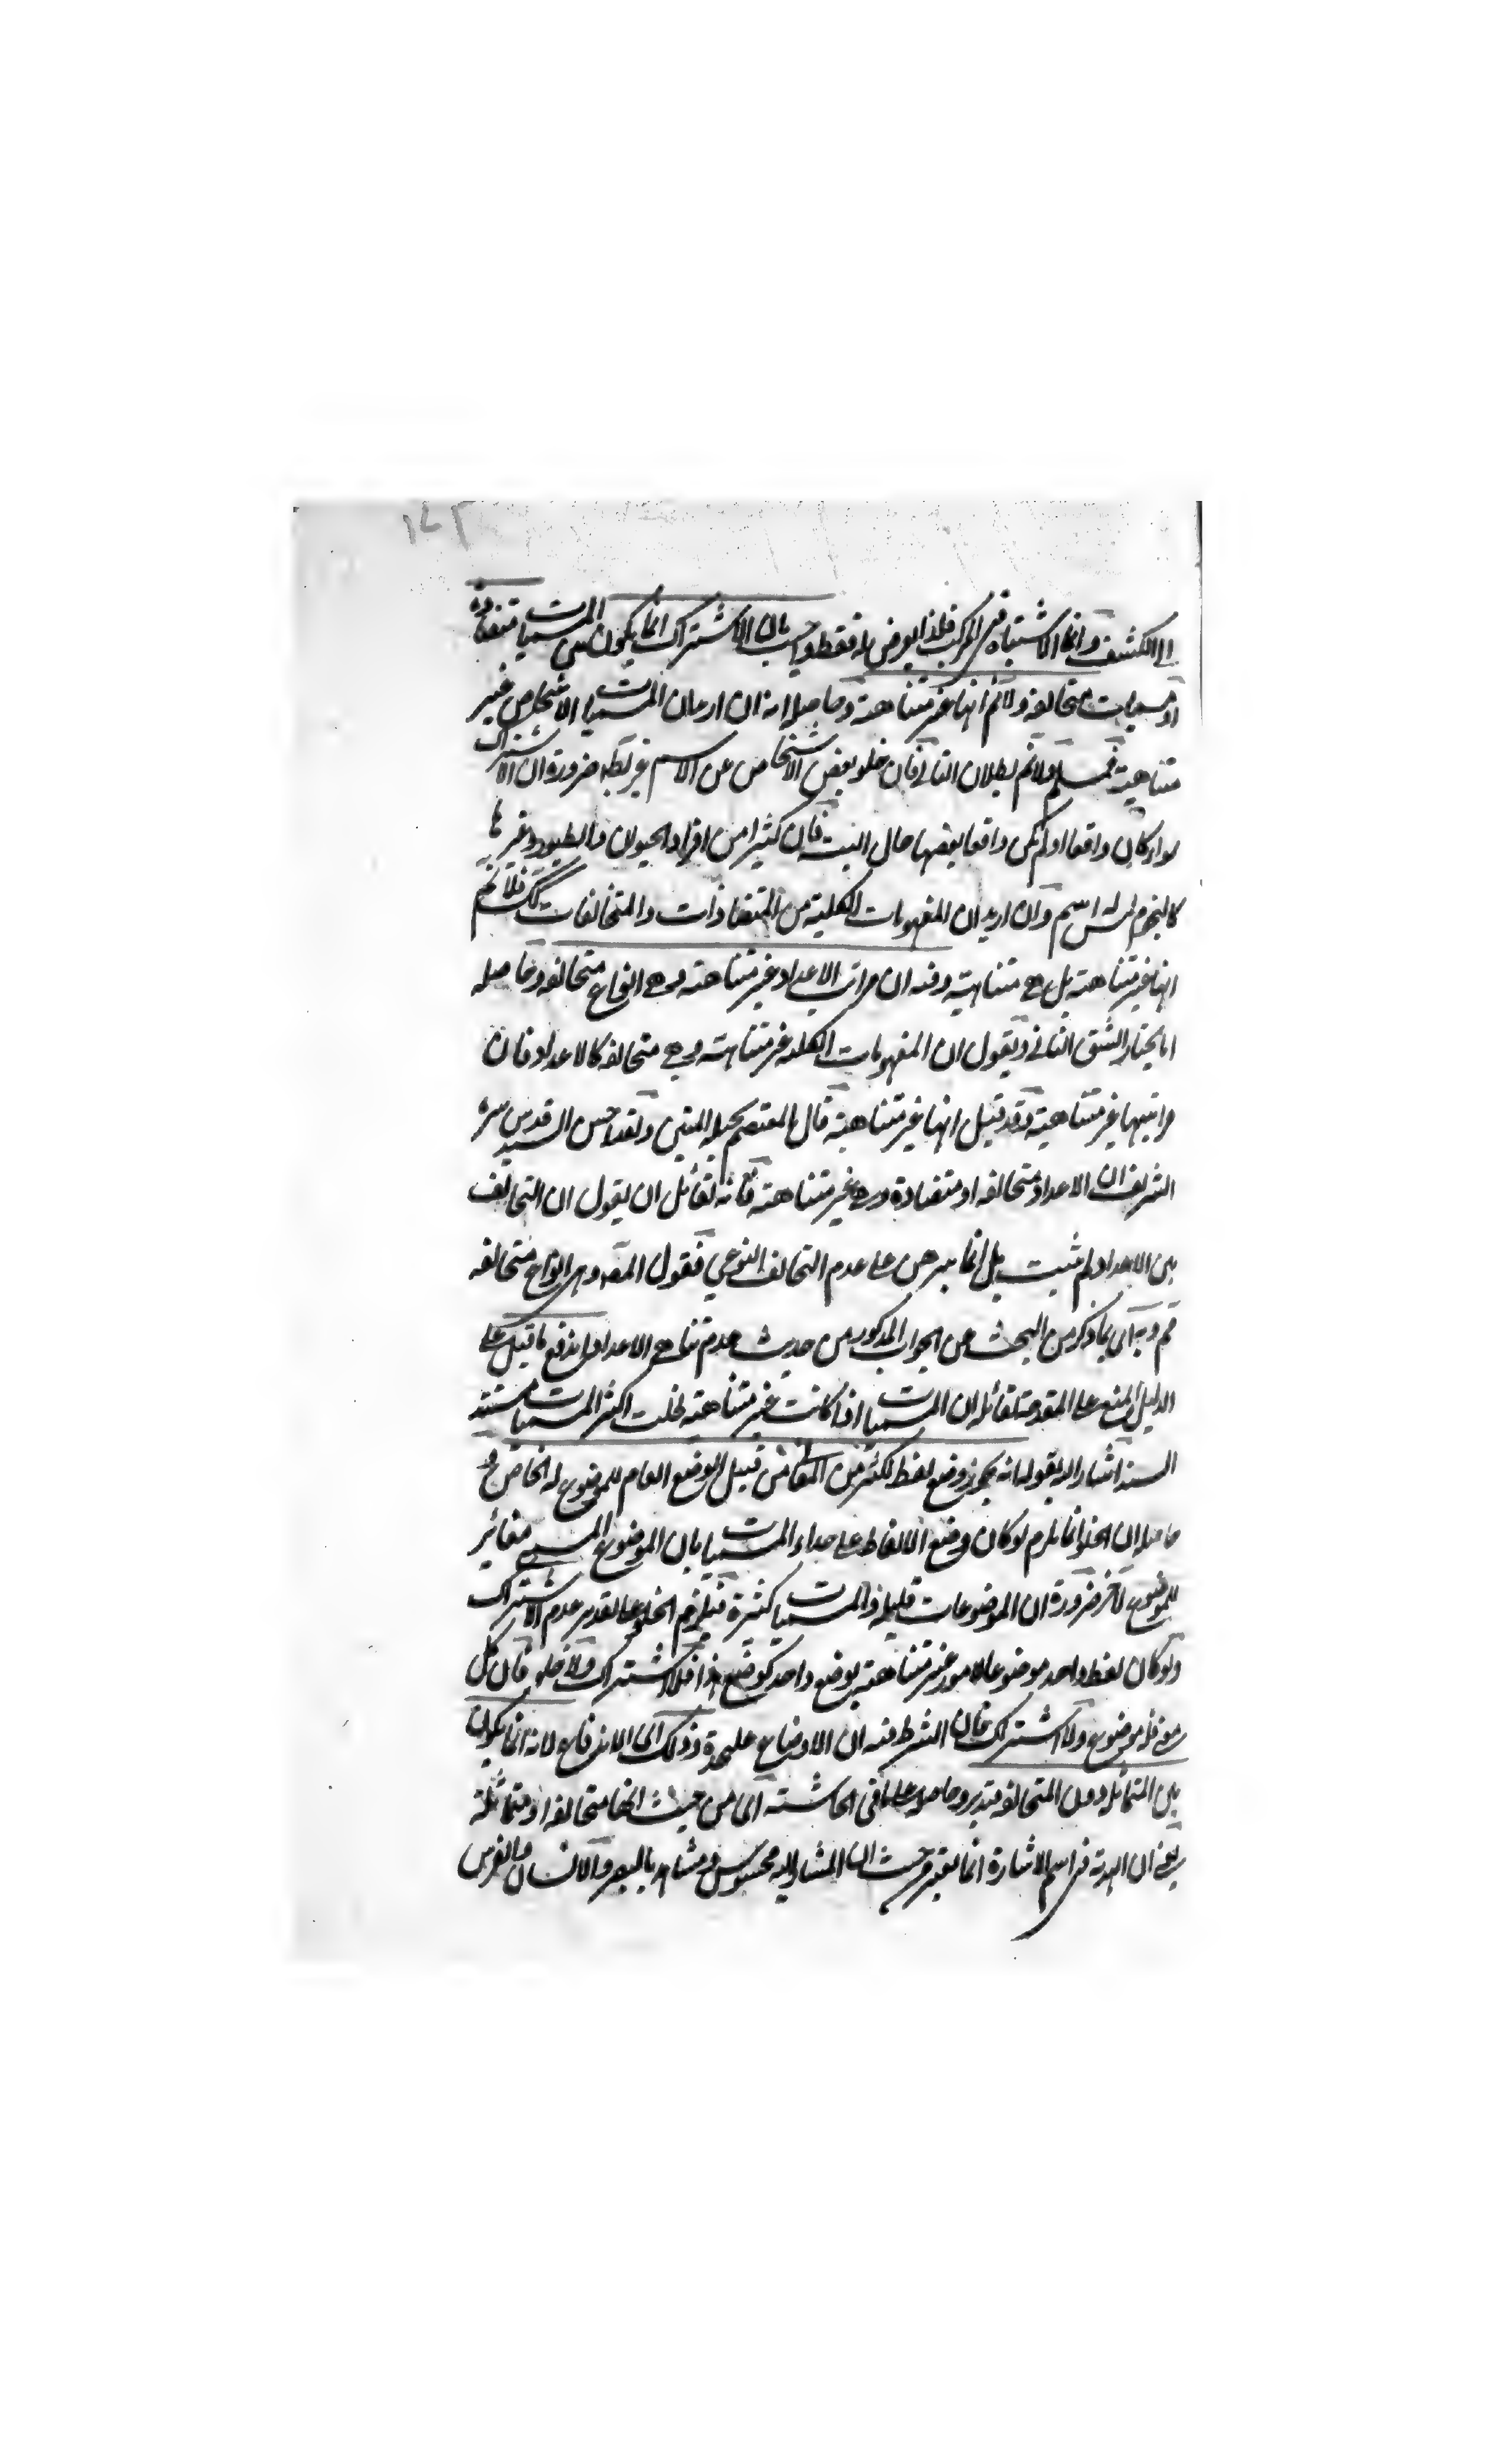 ١٤٢
الى الكشف وانما الاشتباه في المركب فلذا يعرض له فقط واجيب بان الاشتراك انما يكون بين المسميات متضادة
او مسميات متخالفة ولانم انها غير متناهية وحاصله انه ان اريد ان المسميات الاشخاص غير
متناهية فمسلم ولانم بطلان التالي فان خلو بعض الاشخاص عن الاسم غير بط ضرورة ان الاشتراك
سواء كان واقعا او لم يكن واقعا بعضها خال البتة فان كثيرا من افراد الحيوان والطيور وغيرها
كالنجوم ليس له اسم وان اريد ان المفهومات الكلية من المتضادات والمتخالفات كك فلانم
انها غير متناهية بل هي متناهية وفيه ان مراتب الاعداد غير متناهية وهي انواع متخالفة وحاصله
انا نختار الشق الثاني ونقول ان المفهومات الكلية غير متناهية وهي متخالفة كالاعداد فان
مراتبها غير متناهية وقد قيل انها غير متناهية قال المعتصم بحبله المتين ولقد احسن السيد قدس سره
الشريف ان الاعداد متخالفة او متضادة وهي غير متناهية فانه لقائل ان يقول ان التخالف
بين الاعداد لم يثبت بل انما برهن على عدم التخالف النوعي فقول المصه وهي انواع متخالفة
ثم وبه اي بما ذكر من البحث عن الجواب المذكور من حديث عدم تناهي الاعداد يندفع ما قيل على
الدليل المنع على المقدمة القائلة ان المسميات اذا كانت غير متناهية لخلت اكثر المسميات مستند
السند اشار اليه بقوله انه يجوز وضع لفظ لكثير من المعاني من قبيل الوضع العام للموضوع له الخاص و
حاصله ان الخلو انما يلزم لو كان وضع الالفاظ على حداء المسميات بان الموضوع المسمى مغائر
للموضوع لآخر ضرورة ان الموضوعات قليلة والمسميات كثيرة فيلزم الخلو على تقدير عدم الاشتراك
ولو كان لفظ واحد موضوعا لامور غير متناهية بوضع واحد كوضع هذا فلا اشتراك ولا خلو فان كل
موضوع ولا اشتراك فان الشرط فيه ان الاوضاع عليحدة وذلك اي الاندفاع لانه انما يكون
بين المتماثلة دون المتخالفة فتدبر وحاصله على ما في الحاشية اي من حيث انها متخالفة او متماثلة
يعني ان الهذية في اسم الاشارة انما يعتبر من حيث ان المشار اليه محسوس ومشاهد بالبصر والانسان والفرس